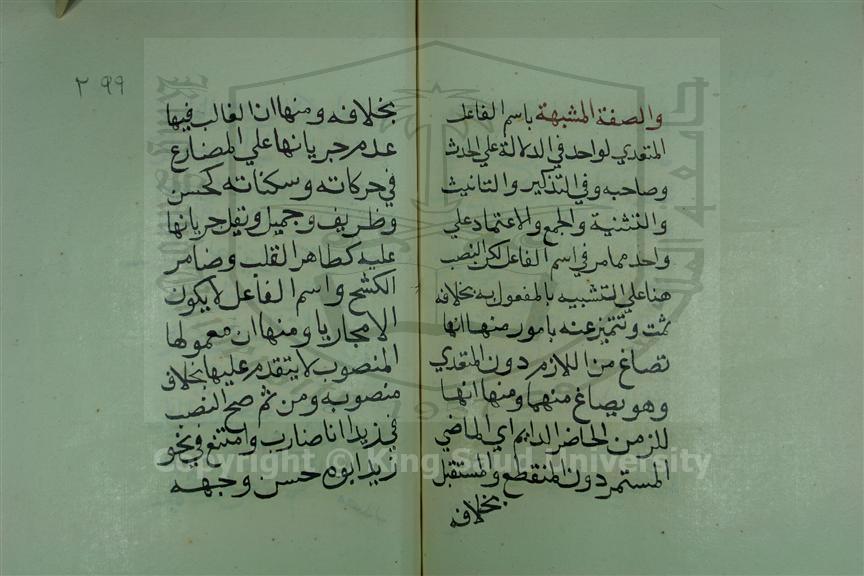 والصفة المشبهة باسم الفاعل
المتعدي لواحد في الدلالة علي الحدث
وصاحبه وفي التذكير والتانيث
والتثنية والجمع والاعتماد علي
واحد مما مر في اسم الفاعل لكن النصب
هنا علي التشبيه بالمفعول به بخلافه
ثمت وتتميز عنه بامور منها انها
تصاغ من اللازم دون المتعدي
وهو يصاغ منهما ومنها انها
للزمن الحاضر الدايم اي الماضي
المستمر دون المنقطع والمستقبل
بخلافه
٢٩٩
بخلافه ومنها ان الغالب فيها
عدم جريانها علي المضارع
في حركاته وسكناته كحسن
وظريف وجميل ويقل جريانها
عليه كطاهر القلب وضامر
الكشح واسم الفاعل لا يكون
الا مجاريا ومنها ان معمولها
المنصوب لا يتقدم عليها بخلاف
منصوبه ومن ثم صح النصب
في زيدا انا ضارب وامتنع في نحو
زيد ابوه حسن وجهه
Copyright © King Saud University